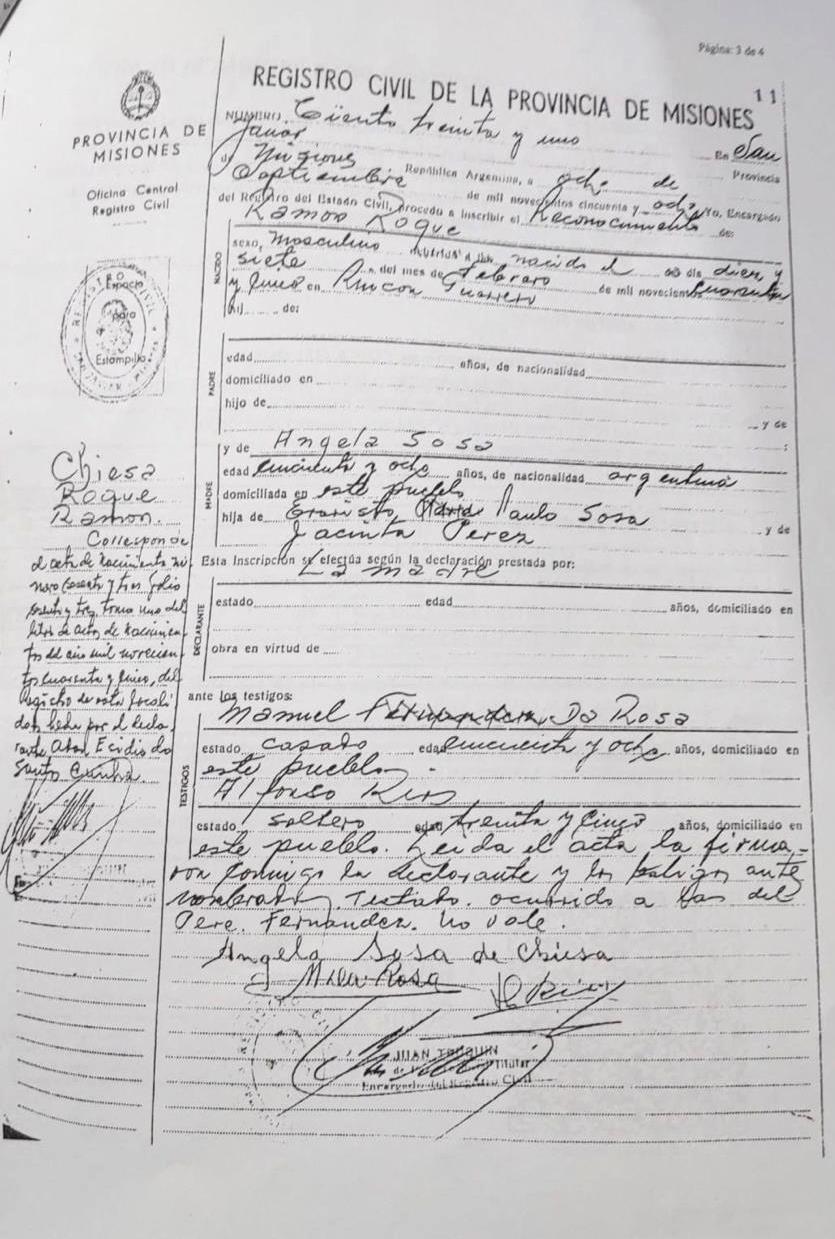 Página: 3 de 4
11
REGISTRO CIVIL DE LA PROVINCIA DE MISIONES
PROVINCIA DE
MISIONES
Oficina Central
Registro Civil
NUMERO Ciento treinta y uno En San
Javier Provincia
de Misiones República Argentina, a ocho de
Septiembre de mil novecientos cincuenta y ocho Yo, Encargado
del Registro del Estado Civil, procedo a inscribir el Reconocimiento de:
Ramon Roque
NACIDO
sexo, masculino nacido el día diez y
siete del mes de Febrero de mil novecientos cuarenta
y cinco en Rincon Guerrero
hij de:
REGISTRO CIVIL
Espacio
para
Estampilla
PADRE
edad años, de nacionalidad
domiciliado en
hijo de
y de
y de Angela Sosa ;
MADRE
edad cincuenta y ocho años, de nacionalidad argentina
domiciliada en este pueblo
hija de Paulo Sosa y de
Jacinta Perez
Esta Inscripción se efectúa según la declaración prestada por:
La madre
DECLARANTE
estado edad años, domiciliado en
obra en virtud de
ante los testigos:
Manuel Fernandez Da Rosa
TESTIGOS
estado casado edad cincuenta y ocho años, domiciliado en
este pueblo.
Alfonso Rios
estado soltero edad treinta y cinco años, domiciliado en
este pueblo. Leida el acta la firma-
ron conmigo la declarante y los testigos ante
nombrados. Testado. ocurrido a las del
Pere. Fernandez. No vale.
Angela Sosa de Chiesa
JUAN
Titular
Encargado del Registro Civil
Chiesa
Roque
Ramon.
Corresponde
el acta de nacimiento nú
mero sesenta y tres folio
sesenta y tres, tomo uno del
libro de actas de nacimien
tos del año mil novecien
tos cuarenta y cinco, del
registro de esta locali
dad hecha por el decla
rante